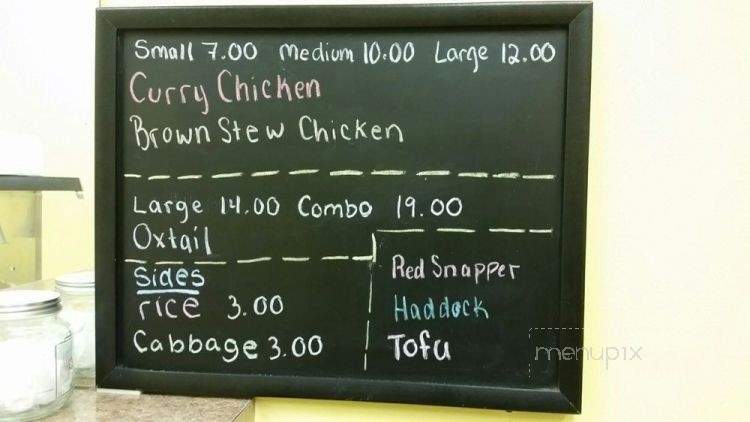 Small 7.00 Medium 10.00 Large 12.00
Curry Chicken
Brown Stew Chicken
Large 14.00 Combo 19.00
Oxtail
Sides
rice 3.00
Cabbage 3.00
Red Snapper
Haddock
Tofu
menupix